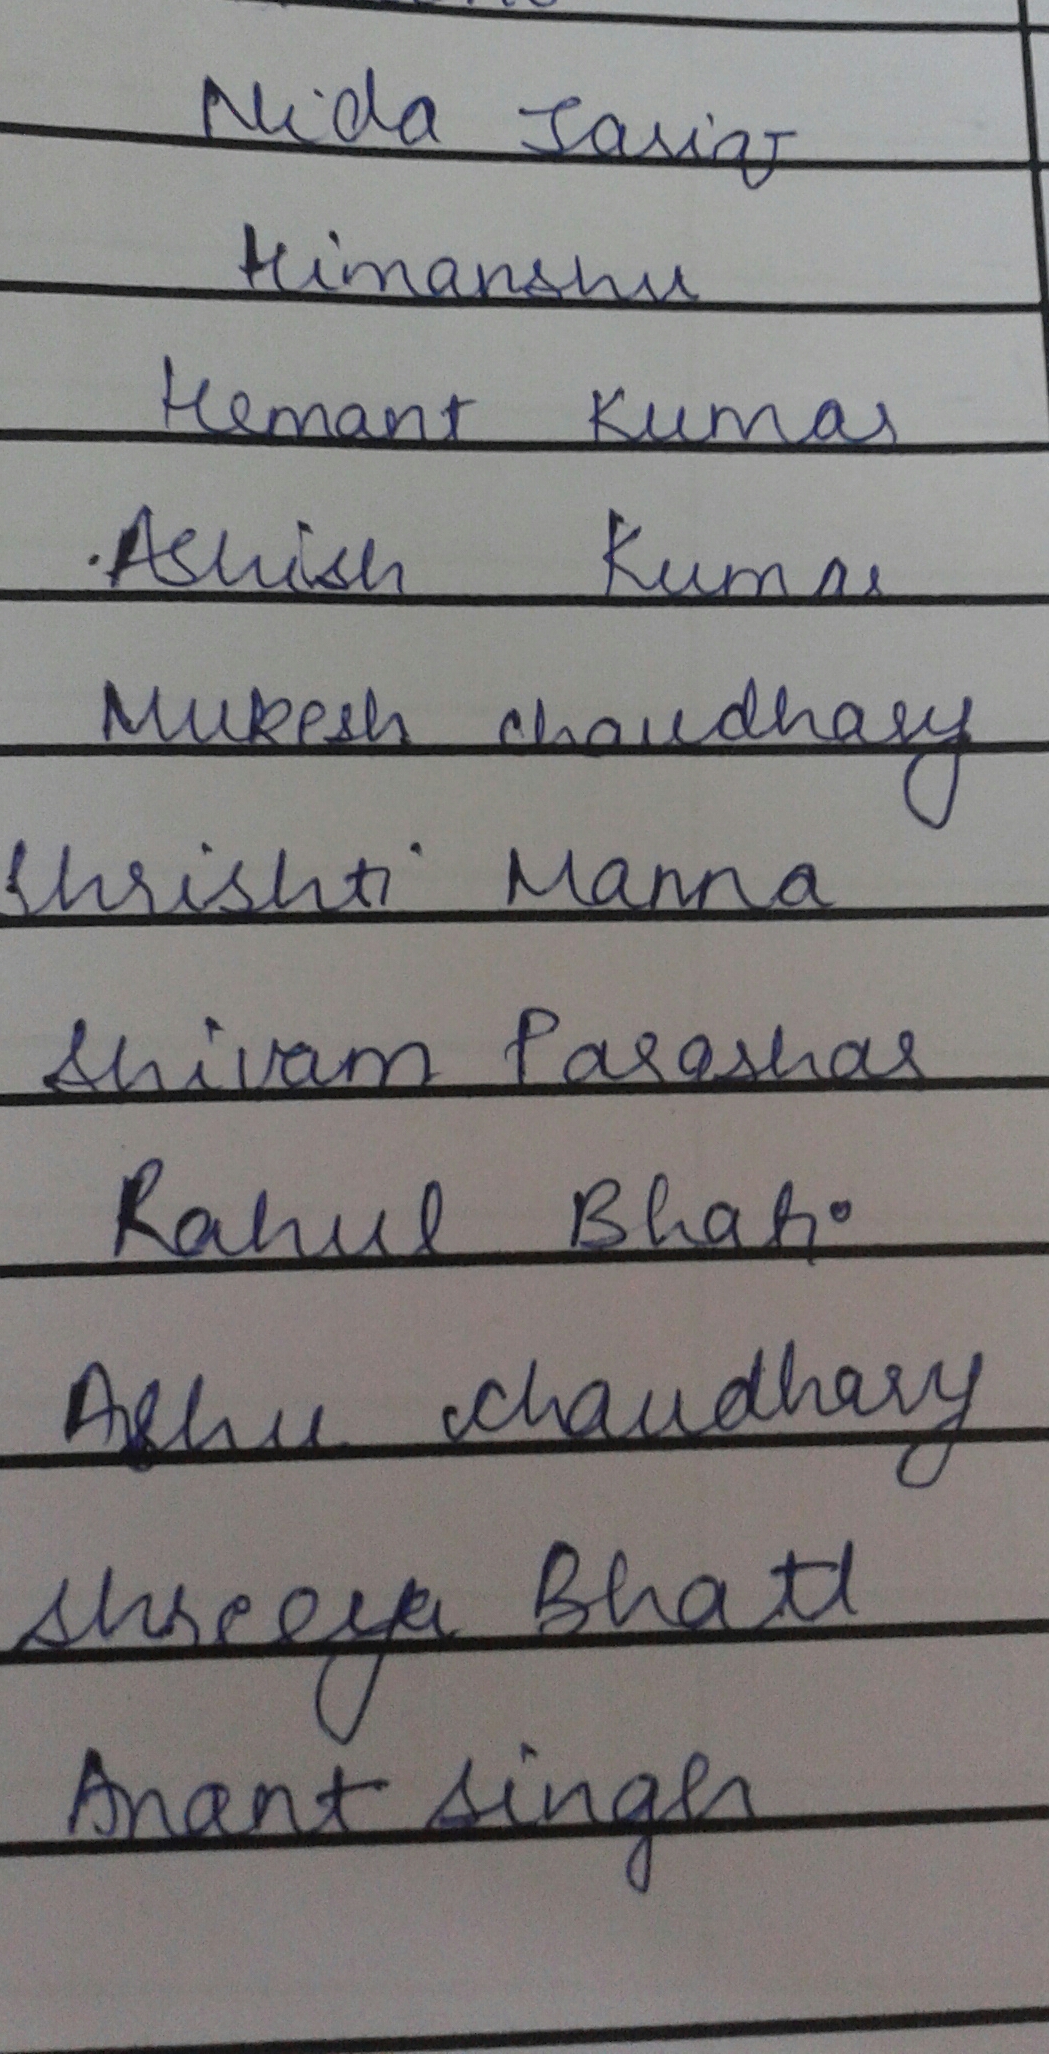 Nida Tariq
Himanshu
Hemant Kumar
Ashish Kumar
Mukesh chaudhary
Shrishti Manna
Shivam Parashar
Rahul Bhati
Ashu chaudhary
Shreeya Bhatt
Anant singh